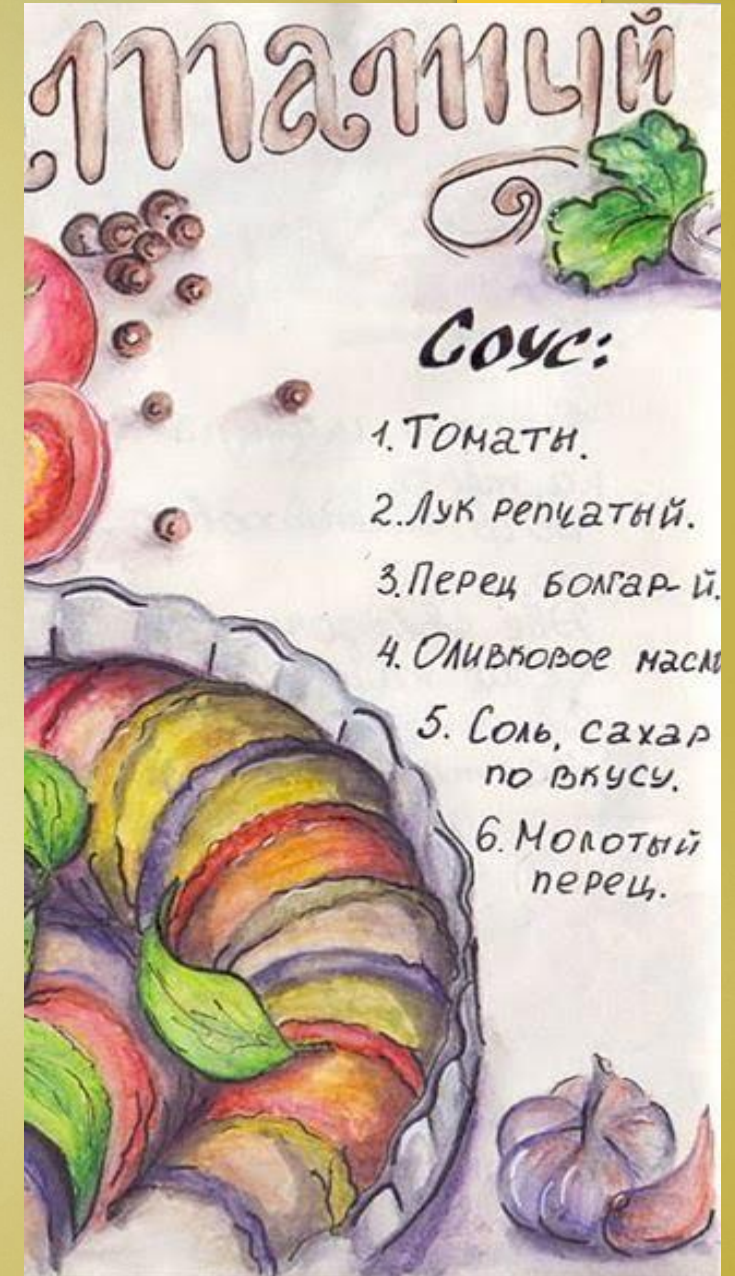 татуй
Соус:
1. Томаты.
2. Лук репчатый.
3. Перец болгар-й.
4. Оливковое масл
5. Соль, сахар
по вкусу.
6. Молотый
перец.